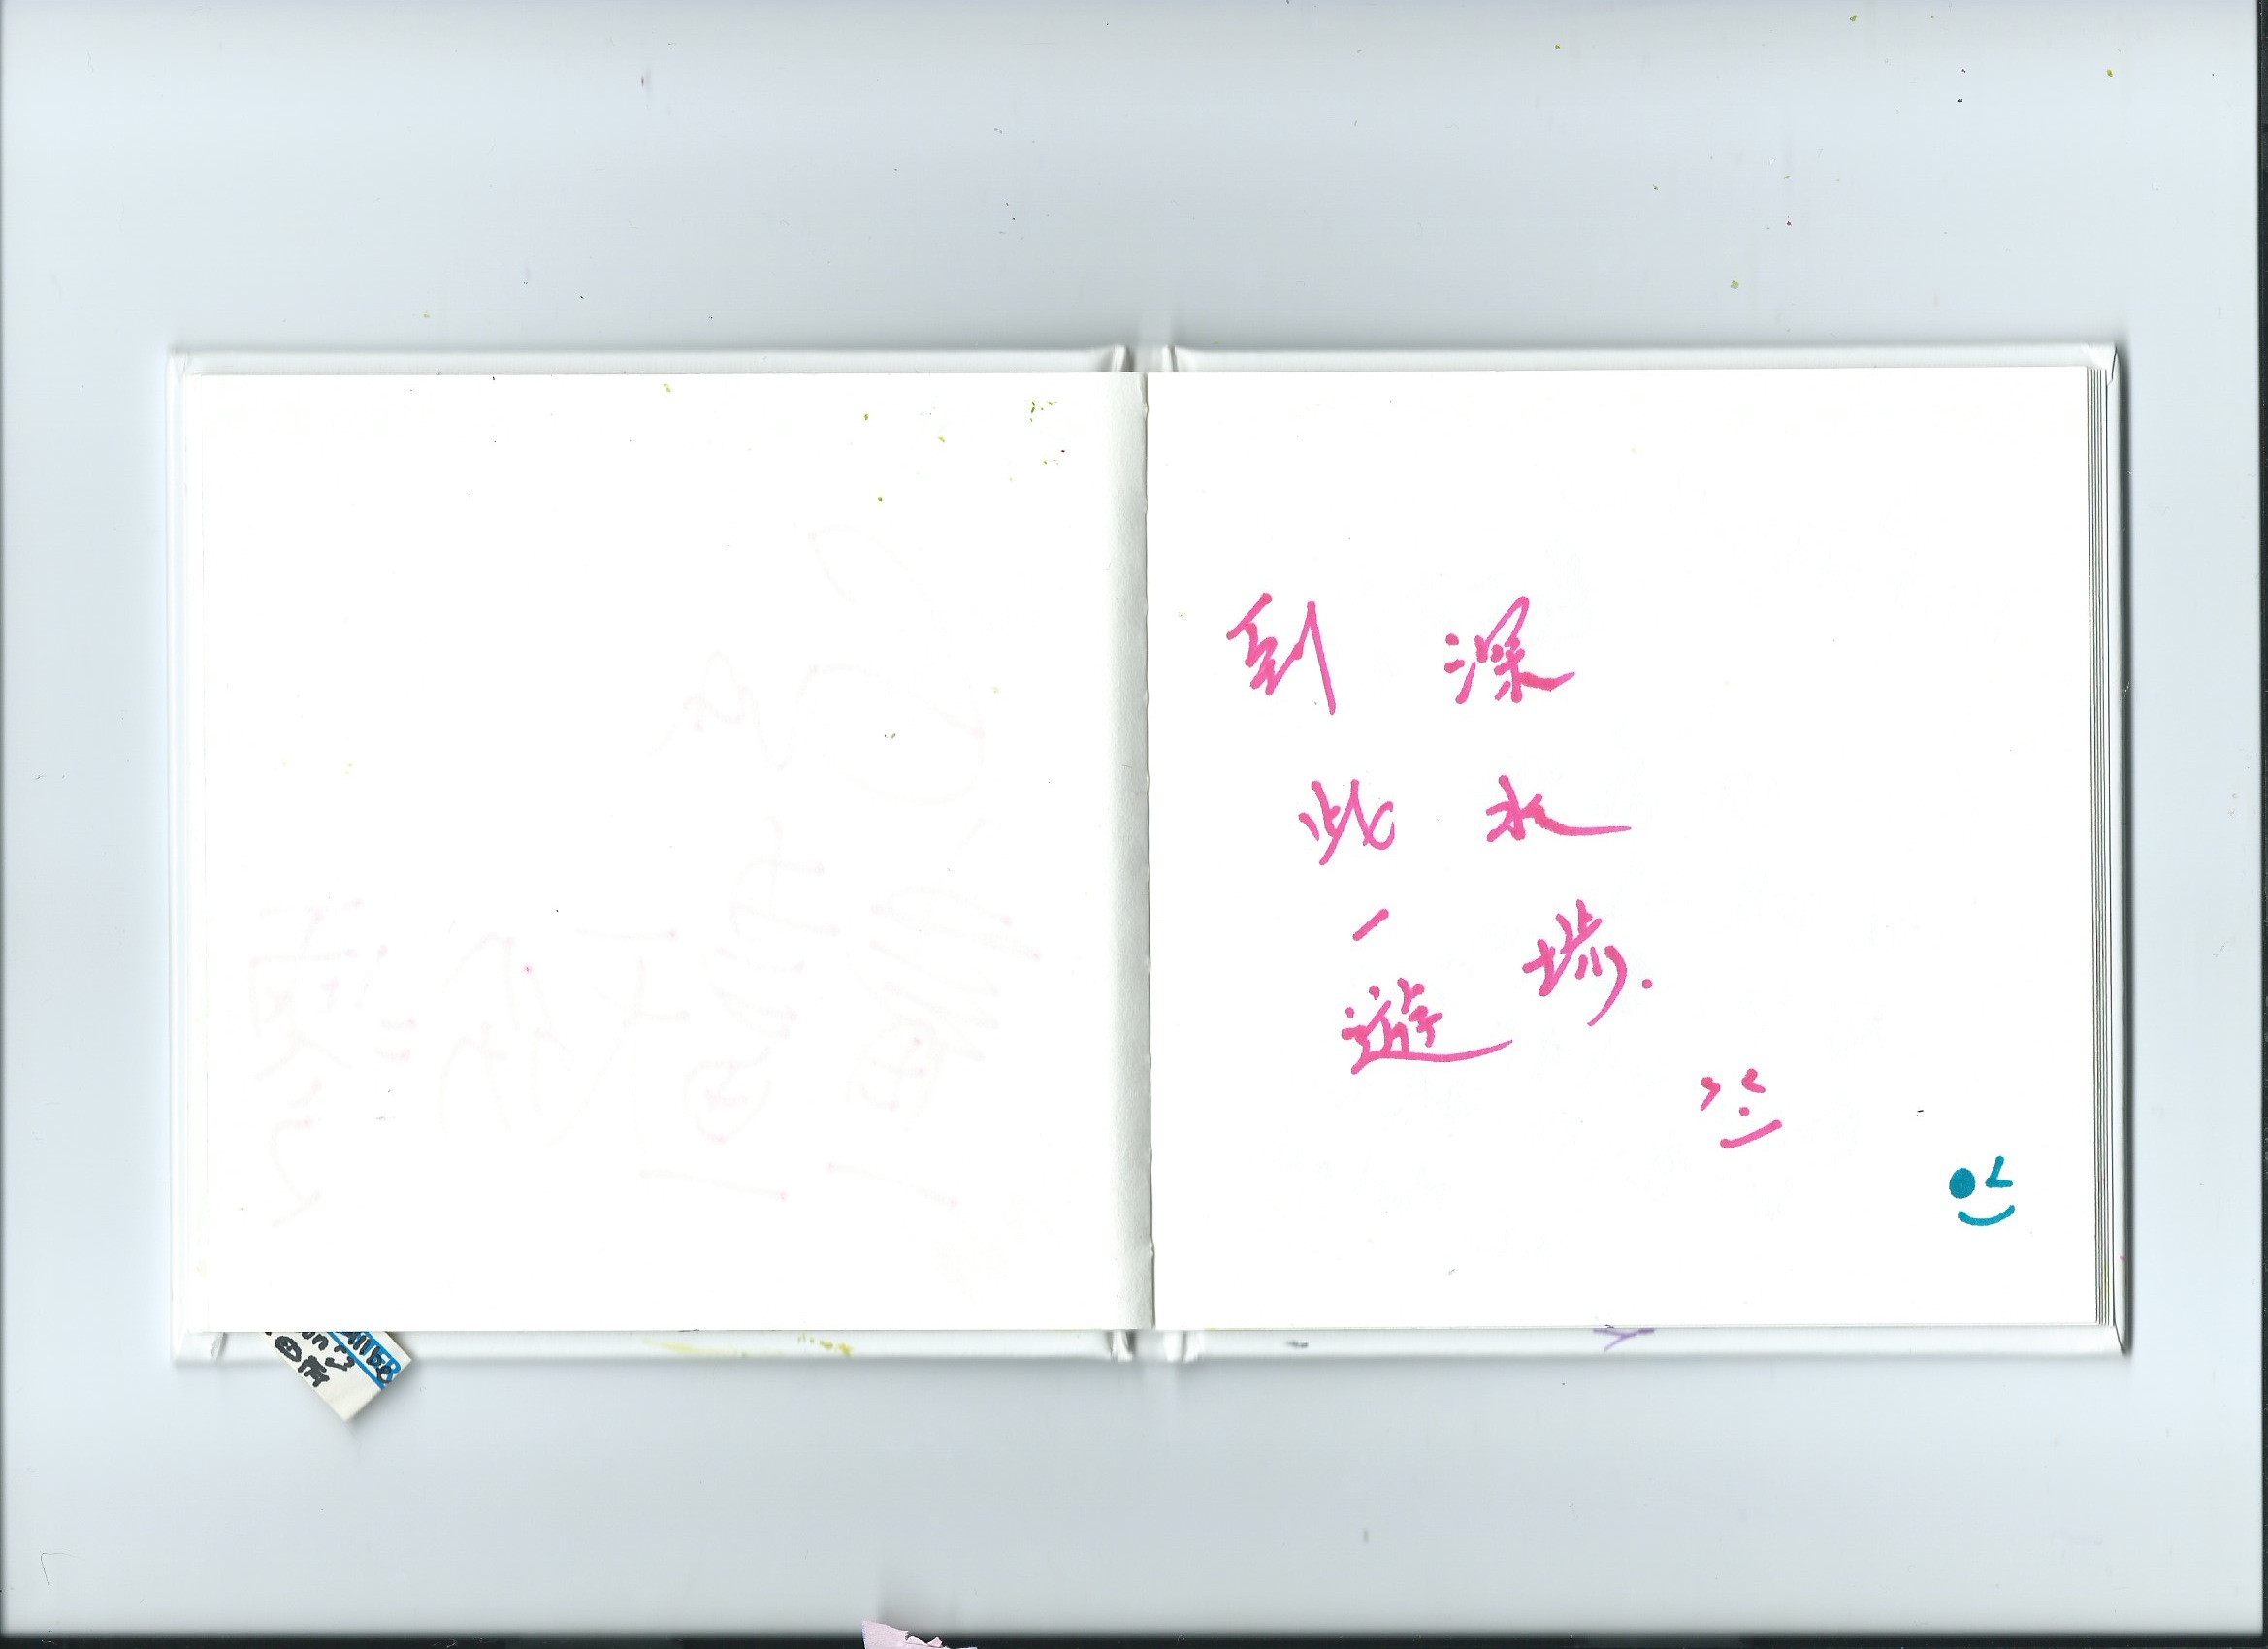 深水埗.
到此一遊